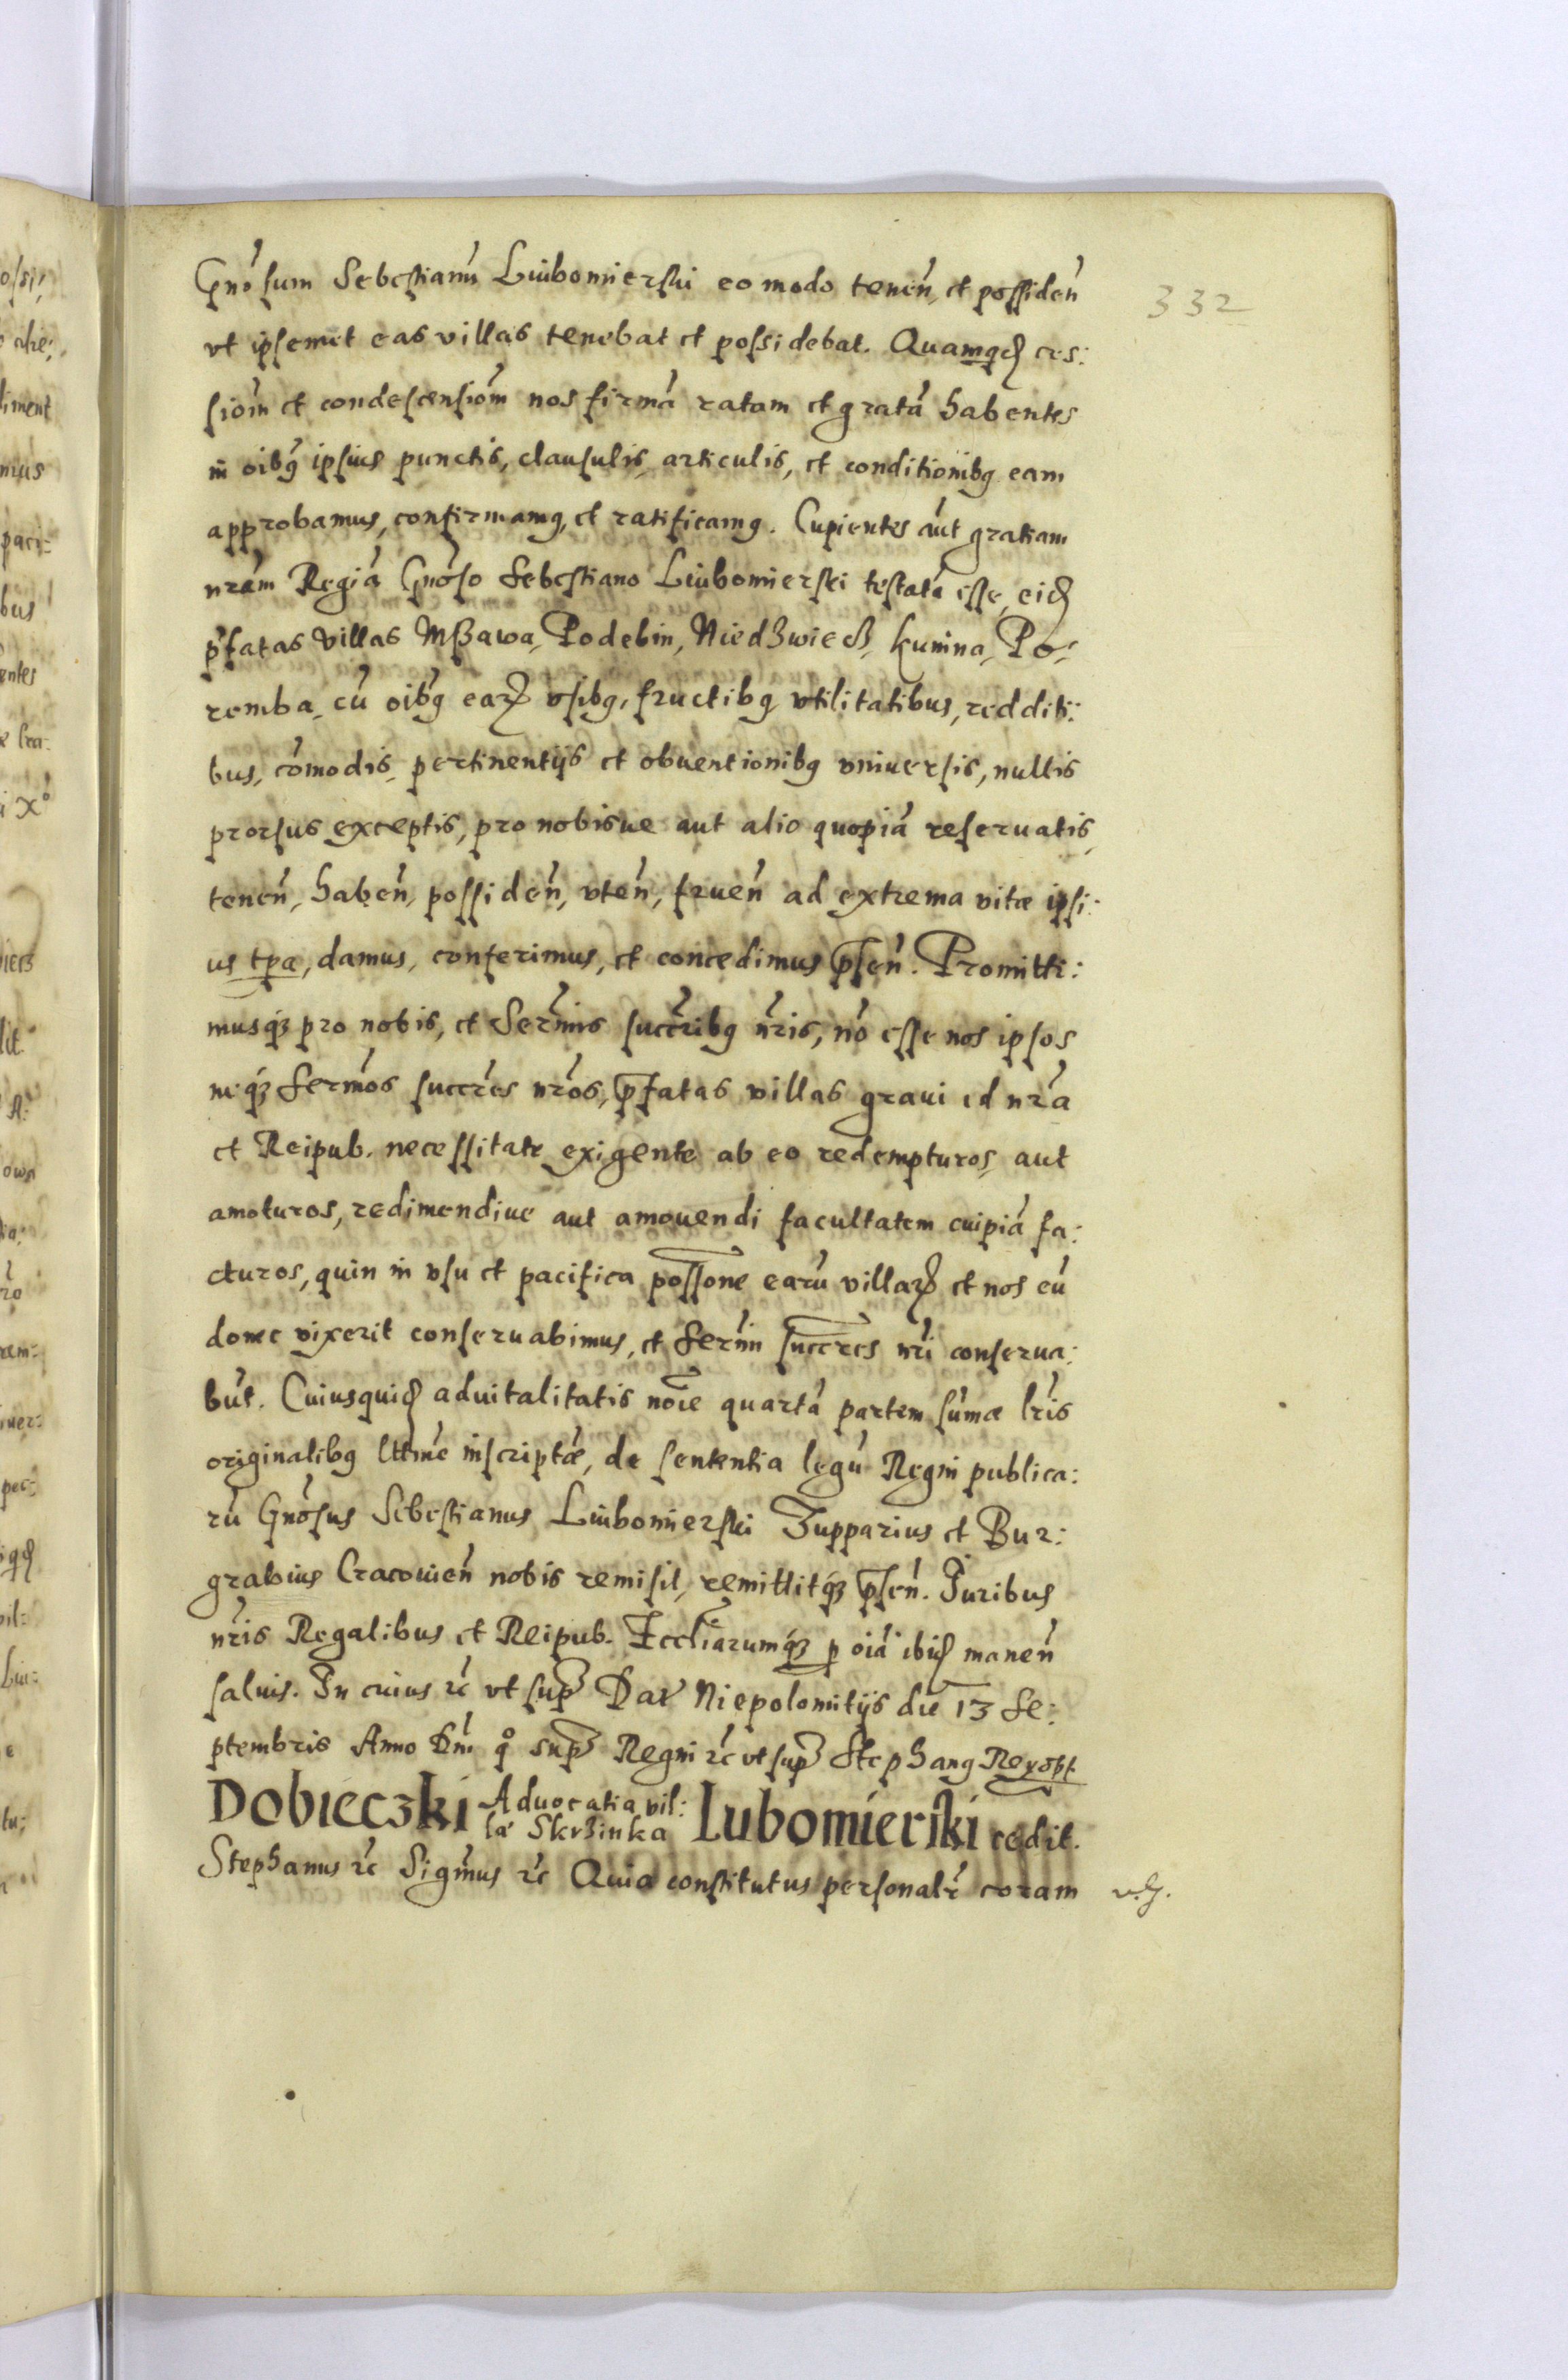 332
Gnosum Sebestianu Liubomierski eo modo tenen, et possiden
vt ipsemet eas villas tenebat et possidebat. Quamqd ces:
siom et condescensiom nos firma ratam et grata habentes
in oibq ipsius punctis, clausulis, articulis, et conditionibq eam
approbamus, confirmamq, et ratificamq. Cupientes aut gratiam
nram Regia Gnoso Sebestiano Liubomierski testata esse, eid
pfatas villas Mßawa, Podebin, Niedzwiedz, Kunina, Po:
remba, cu oibq earz vsibq, fructibq vtilitatibus, redditi:
bus, comodis, pertinentijs et obuentionibq vniuersis, nullis
prorsus exceptis, pro nobisue aut alio quopia reseruatis,
tenen, haben, possiden, vten, fruen ad extrema vitæ ipsi:
us tpa, damus, conferimus, et concedimus psen. Promitti:
musqz pro nobis, et Sermis succribq nris, no esse nos ipsos
neqz sermos succres nros, pfatas villas graui ed nra
et Reipub. necessitate exigente ab eo redempturos, aut
amoturos, redimendiue aut amouendi facultatem cuipia fa:
cturos, quin in vsu et pacifica possone earu villarz et nos eu
donec vixerit conseruabimus, et sermi succres nri conserua:
but. Cuiusquid aduitalitatis noie quarta partem sumæ lris
originalibq lttme inscriptæ, de sententia legu Regni publica:
ru Gnosus Sebestianus Liubomierski Zupparius et Bur:
grabius Cracouien nobis remisit, remittitqz psen. Juribus
nris Regalibus et Reipub. Eccliarumqz p oia ibid manen
saluis. In cuius rc vt sup Dat Niepolomitijs die 13 Se:
ptembris Anno Dni qo sup Regni rc vt sup Stephanq Rex sspt
Dobieczki Aduocatia vil:
læ Skrzinka Lubomierski cedit.
Stephanus rc Sigmus rc Quia constitutus personalr coram